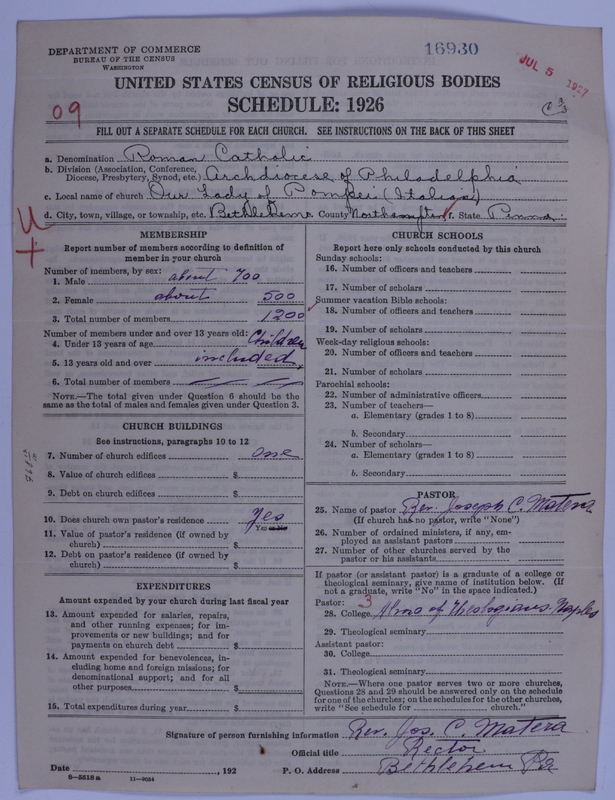 DEPARTMENT OF COMMERCE
BUREAU OF THE CENSUS
WASHINGTON
16930
JUL 5 1927
UNITED STATES CENSUS OF RELIGIOUS BODIES
SCHEDULE: 1926
09
FILL OUT A SEPARATE SCHEDULE FOR EACH CHURCH. SEE INSTRUCTIONS ON THE BACK OF THIS SHEET
a. Denomination Roman Catholic
b. Division (Association, Conference, Diocese, Presbytery, Synod, etc.) Archdiocese of Philadelphia
c. Local name of church Our Lady of Pompeii (Italian)
d. City, town, village, or township, etc. Bethlehem County Northampton f. State Penna
MEMBERSHIP
Report number of members according to definition of member in your church
Number of members, by sex:
1. Male about 700
2. Female about 500
3. Total number of members 1200
Number of members under and over 13 years old:
4. Under 13 years of age Children
5. 13 years old and over included
6. Total number of members
NOTE.—The total given under Question 6 should be the same as the total of males and females given under Question 3.
CHURCH BUILDINGS
See instructions, paragraphs 10 to 12
7. Number of church edifices one
8. Value of church edifices $
9. Debt on church edifices $
10. Does church own pastor's residence Yes
Yes or No
11. Value of pastor's residence (if owned by church) $
12. Debt on pastor's residence (if owned by church) $
EXPENDITURES
Amount expended by your church during last fiscal year
13. Amount expended for salaries, repairs, and other running expenses; for improvements or new buildings; and for payments on church debt $
14. Amount expended for benevolences, including home and foreign missions; for denominational support; and for all other purposes $
15. Total expenditures during year $
CHURCH SCHOOLS
Report here only schools conducted by this church
Sunday schools:
16. Number of officers and teachers
17. Number of scholars
Summer vacation Bible schools:
18. Number of officers and teachers
19. Number of scholars
Week-day religious schools:
20. Number of officers and teachers
21. Number of scholars
Parochial schools:
22. Number of administrative officers
23. Number of teachers—
a. Elementary (grades 1 to 8)
b. Secondary
24. Number of scholars—
a. Elementary (grades 1 to 8)
b. Secondary
PASTOR
25. Name of pastor Rev. Joseph C. Matera
(If church has no pastor, write "None")
26. Number of ordained ministers, if any, employed as assistant pastors
27. Number of other churches served by the pastor or his assistants
If pastor (or assistant pastor) is a graduate of a college or theological seminary, give name of institution below. (If not a graduate, write "No" in the space indicated.)
Pastor: 3
28. College of Theologians. Naples
29. Theological seminary
Assistant pastor:
30. College
31. Theological seminary
NOTE.—Where one pastor serves two or more churches, Questions 28 and 29 should be answered only on the schedule for one of the churches; on the schedules for the other churches, write "See schedule for church."
Signature of person furnishing information Rev. Jos. C. Matera
Official title Rector
Date , 192 P. O. Address Bethlehem Pa
8—5518a 11—9054